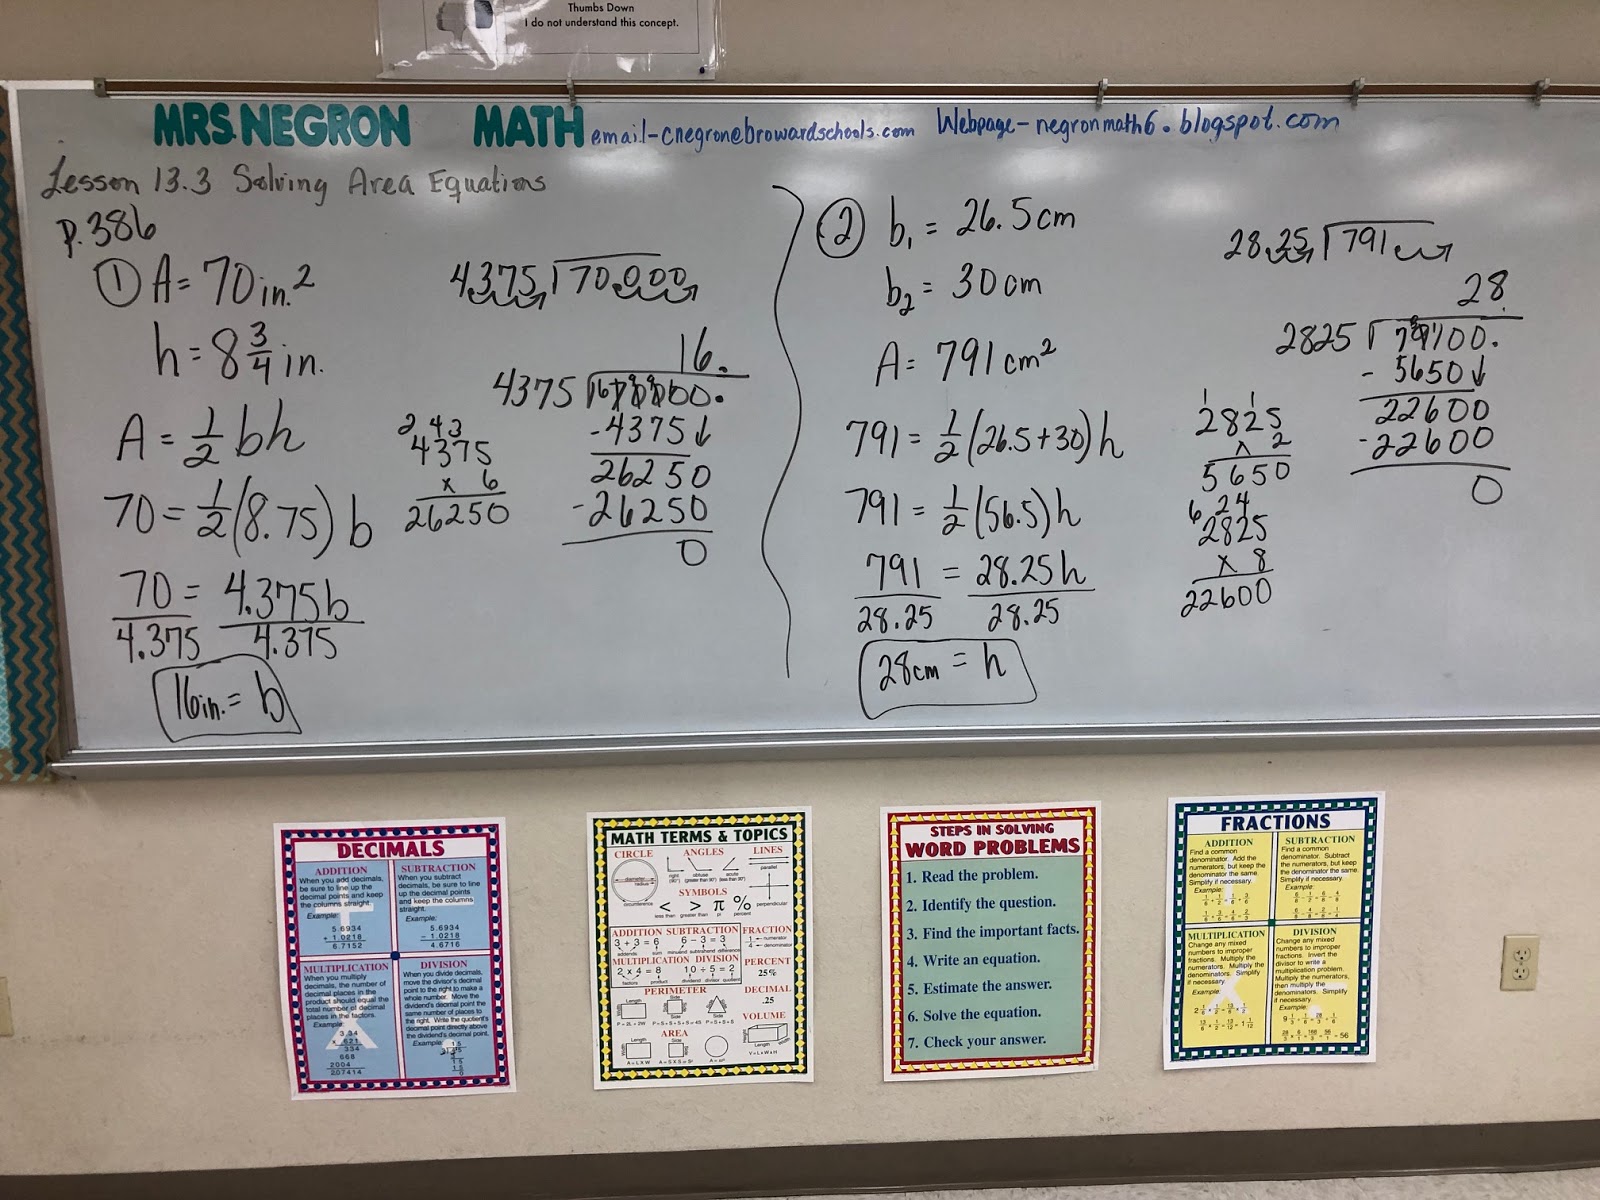 Thumbs Down
I do not understand this concept.
MRS. NEGRON MATH email-cnegron@browardschools.com Webpage-negronmath6.blogspot.com
Lesson 13.3 Solving Area Equations
p.386
① A = 70 in.²
h = 8 3/4 in.
A = 1/2 bh
70 = 1/2 (8.75) b
70 = 4.375b
4.375 4.375
16in. = b
4.375 ⟌70.000
16.
4375 ⟌70000.
-4375↓
26250
-26250
0
2 43
4375
x 6
26250
② b₁ = 26.5 cm
b₂ = 30 cm
A = 791 cm²
791 = 1/2 (26.5+30) h
791 = 1/2 (56.5) h
791 = 28.25 h
28.25 28.25
28cm = h
28.25 ⟌791
28.
2825 ⟌79100.
- 5650↓
22600
-22600
0
1 1
2825
x 2
5650
6 24
2825
x 8
22600
DECIMALS
ADDITION
When you add decimals,
be sure to line up
the decimal points
and keep
the columns straight.
Example:
5.6934
+ 1.0218
6.7152
SUBTRACTION
When you subtract
decimals, be sure to line
up the decimal points
and keep the columns
straight.
Example:
5.6934
- 1.0218
4.6716
MULTIPLICATION
When you multiply
decimals, the number of
decimal places in the
product should equal the
total number of decimal
places in the factors.
Example:
3.34
x .621
334
668
2004
2.07414
DIVISION
When you divide decimals,
move the divisor's decimal
point to the right to make a
whole number. Move the
dividend's decimal point the
same number of places to
the right. Write the quotient's
decimal point directly above
the dividend's decimal point.
Example:
MATH TERMS & TOPICS
CIRCLE
diameter
radius
circumference
ANGLES
right (90°)
obtuse (greater than 90°)
acute (less than 90°)
LINES
parallel
perpendicular
SYMBOLS
< > π %
less than greater than pi percent
ADDITION SUBTRACTION
3 + 3 = 6 6 – 3 = 3
addends sum minuend subtrahend difference
FRACTION
1/4 numerator denominator
MULTIPLICATION DIVISION
2 x 4 = 8 10 ÷ 5 = 2
factors product dividend divisor quotient
PERCENT
25%
DECIMAL
.25
PERIMETER
AREA
VOLUME
STEPS IN SOLVING
WORD PROBLEMS
1. Read the problem.
2. Identify the question.
3. Find the important facts.
4. Write an equation.
5. Estimate the answer.
6. Solve the equation.
7. Check your answer.
FRACTIONS
ADDITION
Find a common
denominator. Add the
numerators, but keep the
denominator the same.
Simplify if necessary.
Example:
SUBTRACTION
Find a common
denominator. Subtract
the numerators, but keep
the denominator the same.
Simplify if necessary.
Example:
MULTIPLICATION
Change any mixed
numbers to improper
fractions. Multiply the
numerators. Multiply the
denominators. Simplify
if necessary.
Example:
DIVISION
Change any mixed
numbers to improper
fractions. Invert the
divisor to write a
multiplication problem.
Multiply the numerators,
then multiply the
denominators. Simplify
if necessary.
Example: